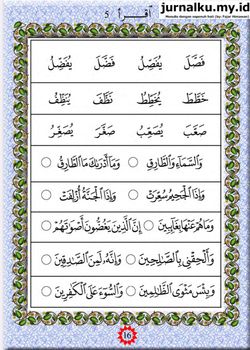 jurnalku.my.id
اقرأ 5
فَصَّلَ يُفَصِّلُ فَضَّلَ يُفَضِّلُ
خَطَّطَ يُخَطِّطُ نَظَّفَ يُنَظِّفُ
صَعَّبَ يُصَعِّبُ صَغَّرَ يُصَغِّرُ
وَالسَّمَاءِ وَالطَّارِقِ ○ وَمَا أَدْرٰىكَ مَا الطَّارِقُ ○
وَإِذَا الْجَحِيمُ سُعِّرَتْ ○ وَإِذَا الْجَنَّةُ أُزْلِفَتْ ○
وَمَاهُمْ عَنْهَا بِغَآئِبِينَ ○ إِنَّ الَّذِينَ يَغُضُّونَ أَصْوَاتَهُمْ ○
وَأَلْحِقْنِي بِالصَّالِحِينَ ○ وَإِنَّهُ لَمِنَ الصَّادِقِينَ ○
وَبِئْسَ مَثْوَى الظَّالِمِينَ ○ وَالسُّوءَ عَلَى الْكَافِرِينَ ○
16